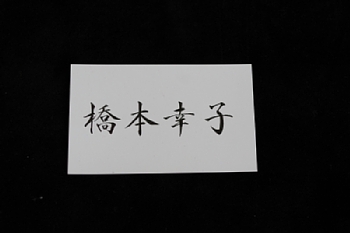 橋本幸子